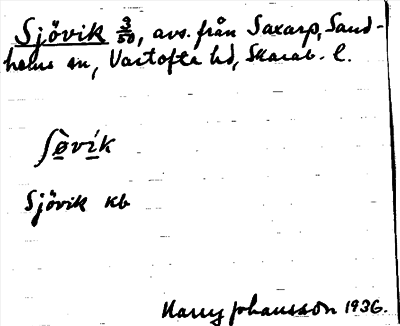 Sjövik 3/50, avs. från Saxarp, Sand-
hems sn, Vartofta hd, Skarab. l.
ʃø̀vík
Sjövik kb
Harry Johansson 1936.